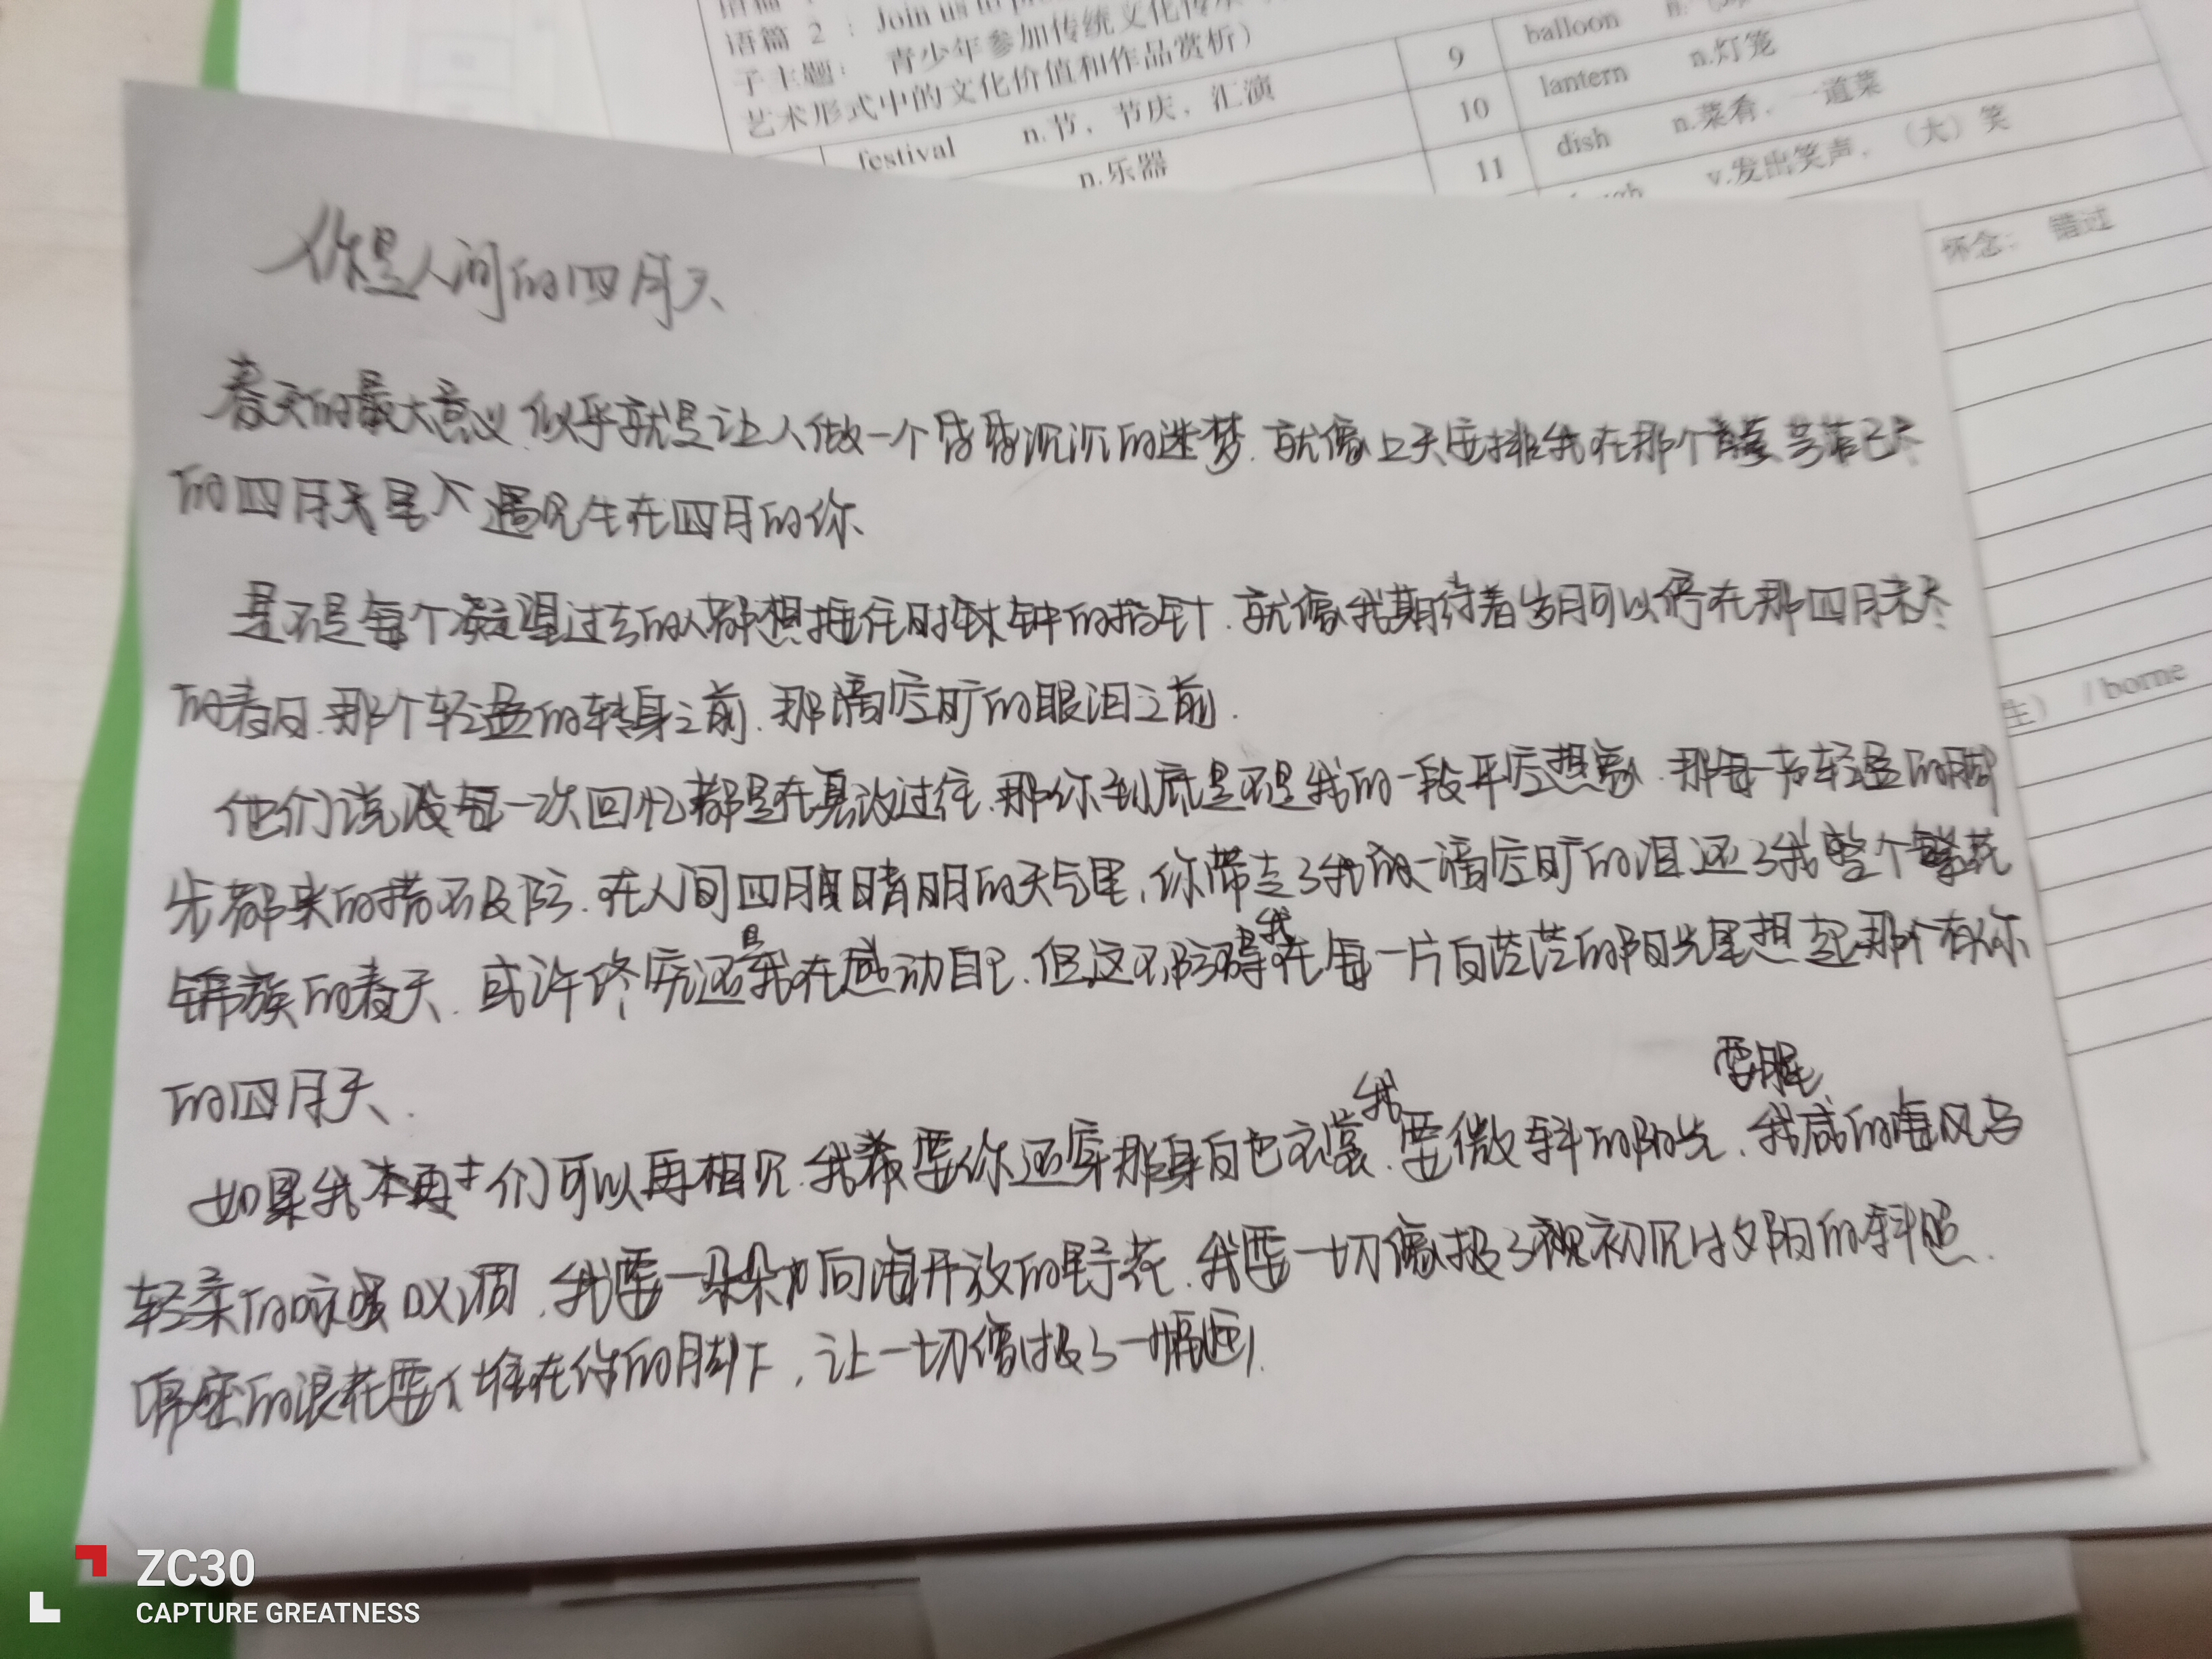 语篇 2 : Join us to
子主题： 青少年参加传统文化传承
艺术形式中的文化价值和作品赏析）
festival n.节，节庆，汇演
n.乐器
9 balloon
10 lantern n.灯笼
11 dish n.菜肴，一道菜
v.发出笑声，（大）笑
怀念； 错过
生） / borne
你是人间的四月天
春天的最大意义，似乎就是让人做一个昏昏沉沉的迷梦，就像上天安排我在那个芳菲已尽
的四月天里，遇见生在四月的你
是不是每个凝望过去的人都想拽住时钟的指针，就像我期待着岁月可以停在那四月未尽
的春日，那个轻盈的转身之前，那滴空旷的眼泪之前.
他们说每一次回忆都是在篡改过往，那你到底是不是我的一段平空想象，那每一步轻盈的脚
步都来的措不及防，在人间四月晴朗的天气里，你带走了我的一滴空旷的泪还了我整个繁花
锦簇的春天，或许终究还是我在感动自己，但这不防碍我在每一片白茫茫的阳光里想起那个有你
的四月天.
如果我们可以再相见，我要你还穿那身白色衣裳，我要微斜的阳光，要腥咸的海风与
轻柔的咏叹调，我要一朵朵向海开放的野花，我要一切像极了初见时夕阳的斜照，
的浪花要堆在你的脚下，让一切像极了一幅画.
ZC30
CAPTURE GREATNESS